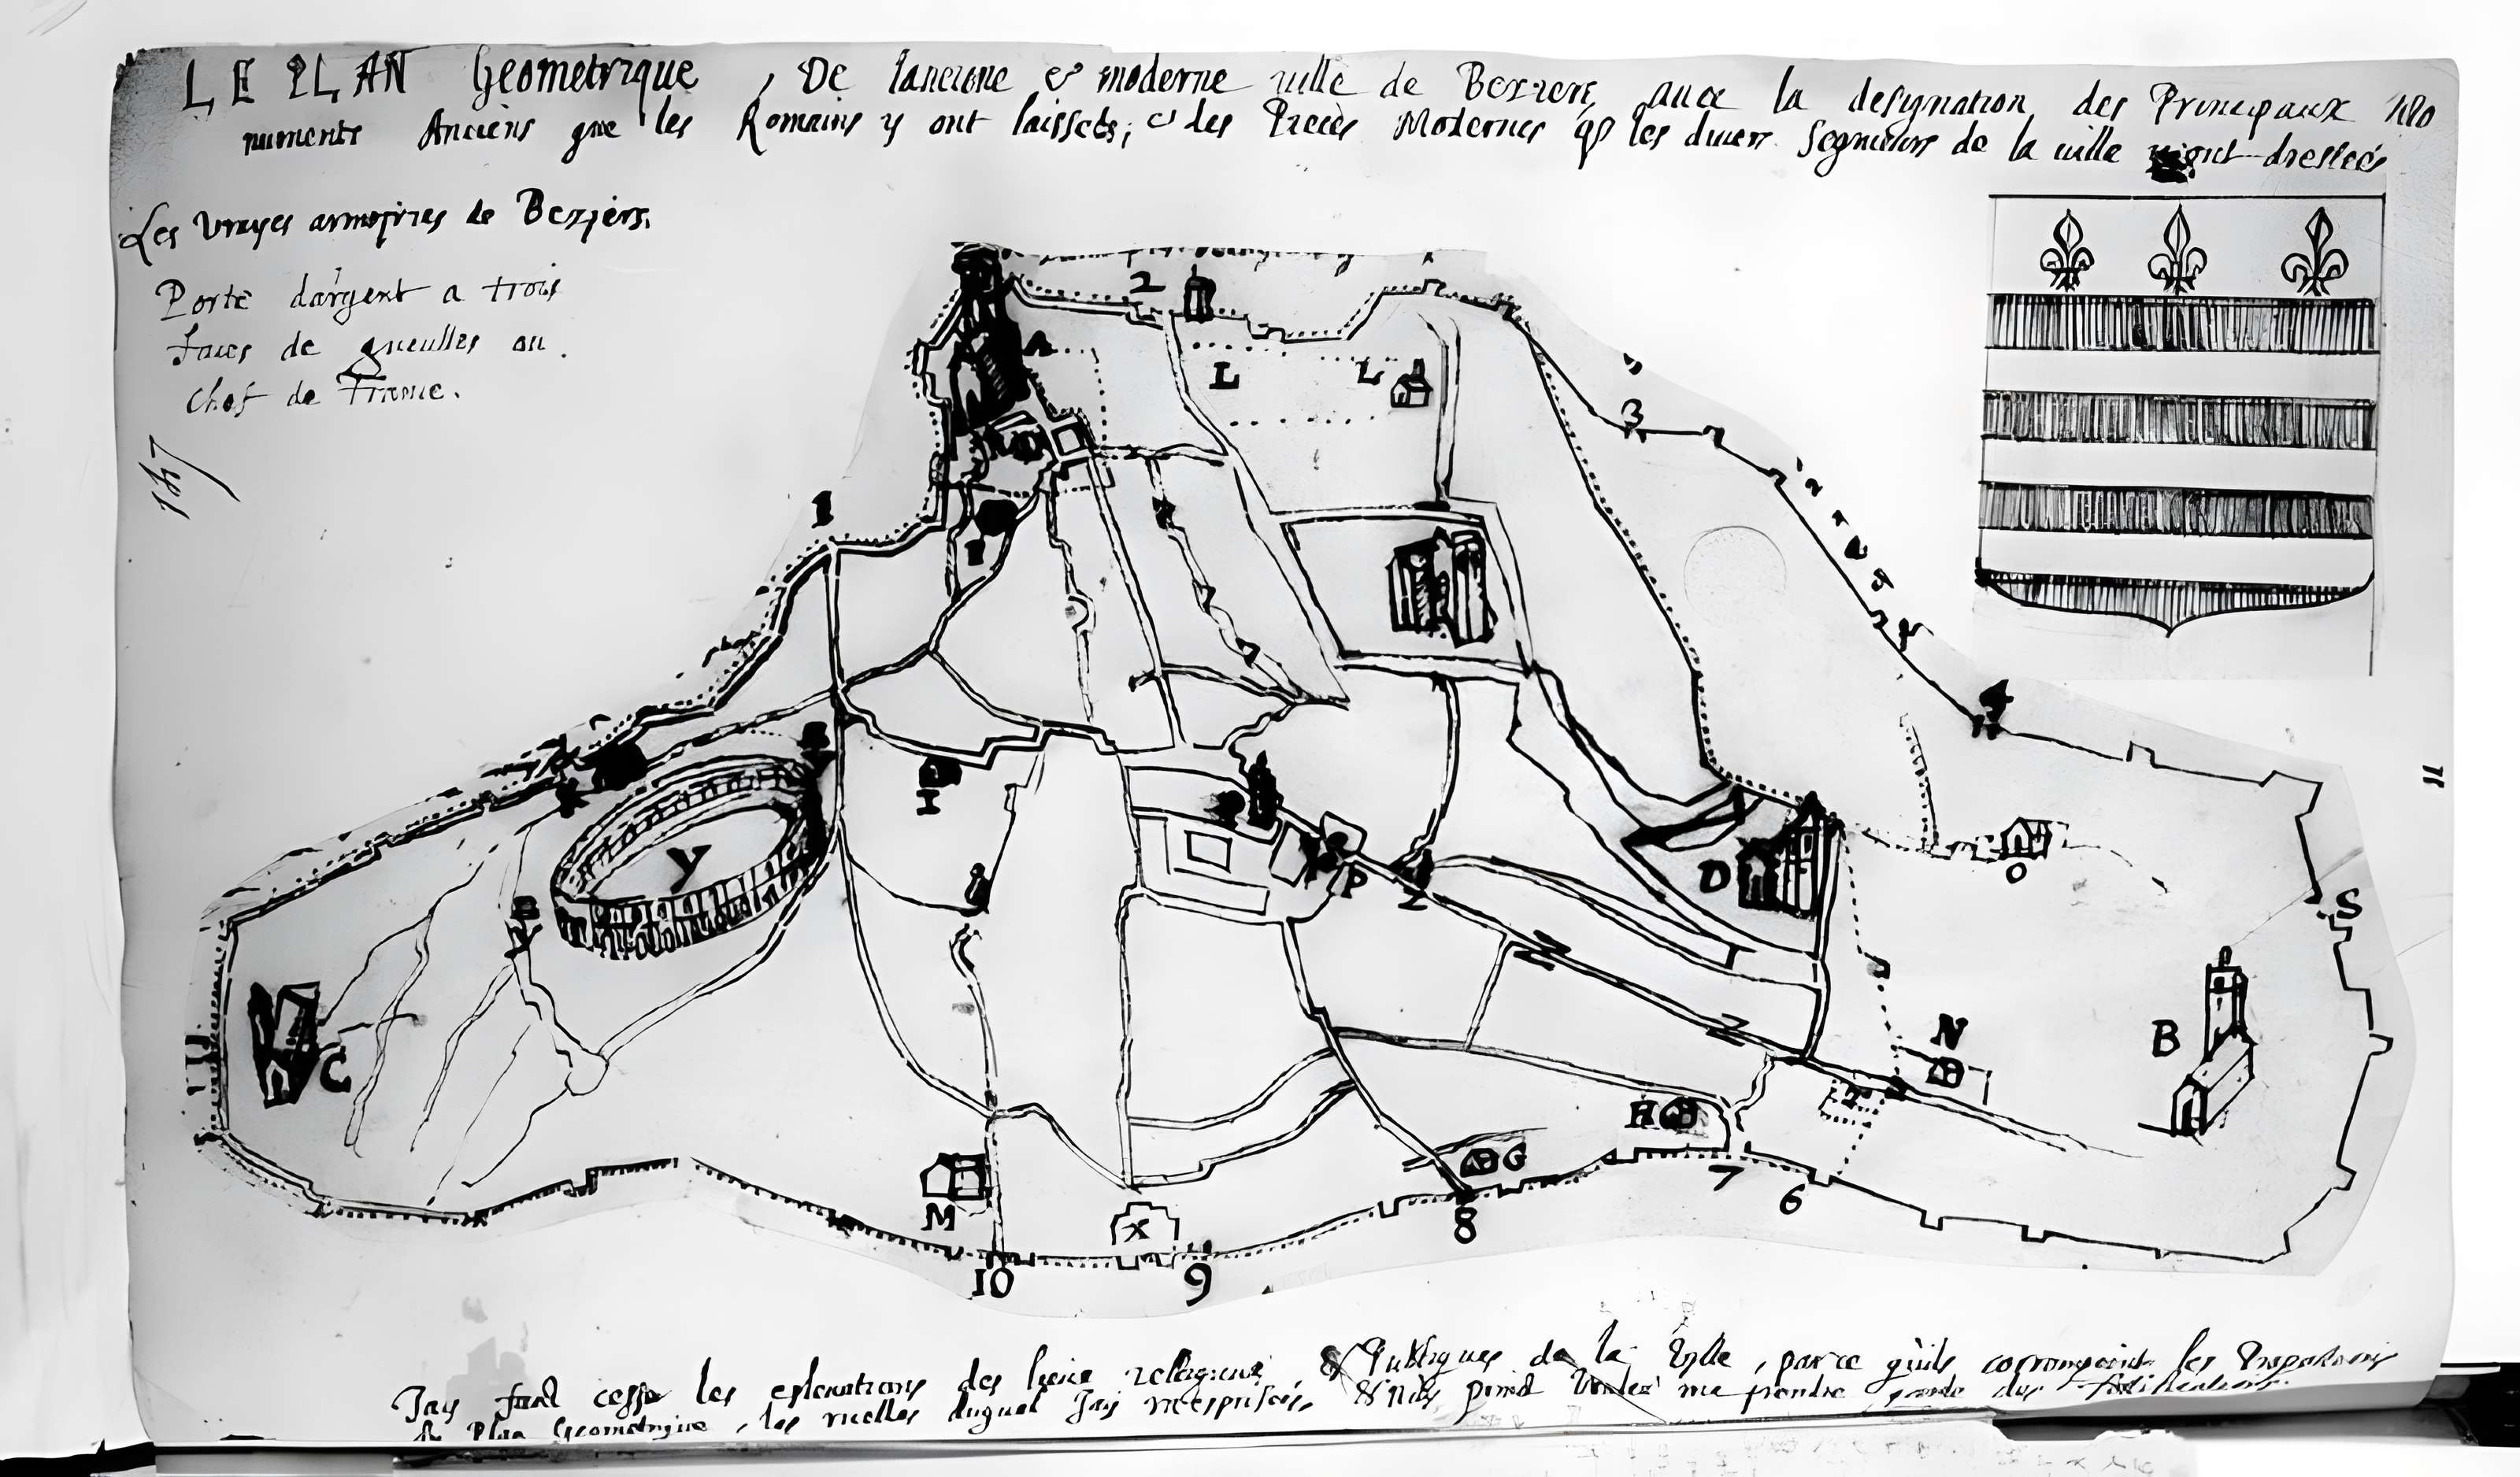 LE PLAN Geometrique, De lancienne & moderne ville de Bezziers, auec la designation des Principaux Mo
numents Anciens que les Romains y ont laissets; & des Pieces Modernes q̃ les diuers Segneurs de la ville y ont dressées
Les Vrayes armoiries de Bezziers.
Porte dargent a trois
faces de gueulles au
chef de France.
147
2
A
L L
3
1
I
4
Y
I
D
O
P
Z
S
Z
C
Z
N
B
T
H
G
M
X
7 6
8
10 9
11
Jay fait cesser les explications des lieux relligieux & Publiques de la Ville, parce quils corrompoint les
le Plan Geometrique, les ruelles duquel Jay mesprisées, & nay point voulu me prendre garde des